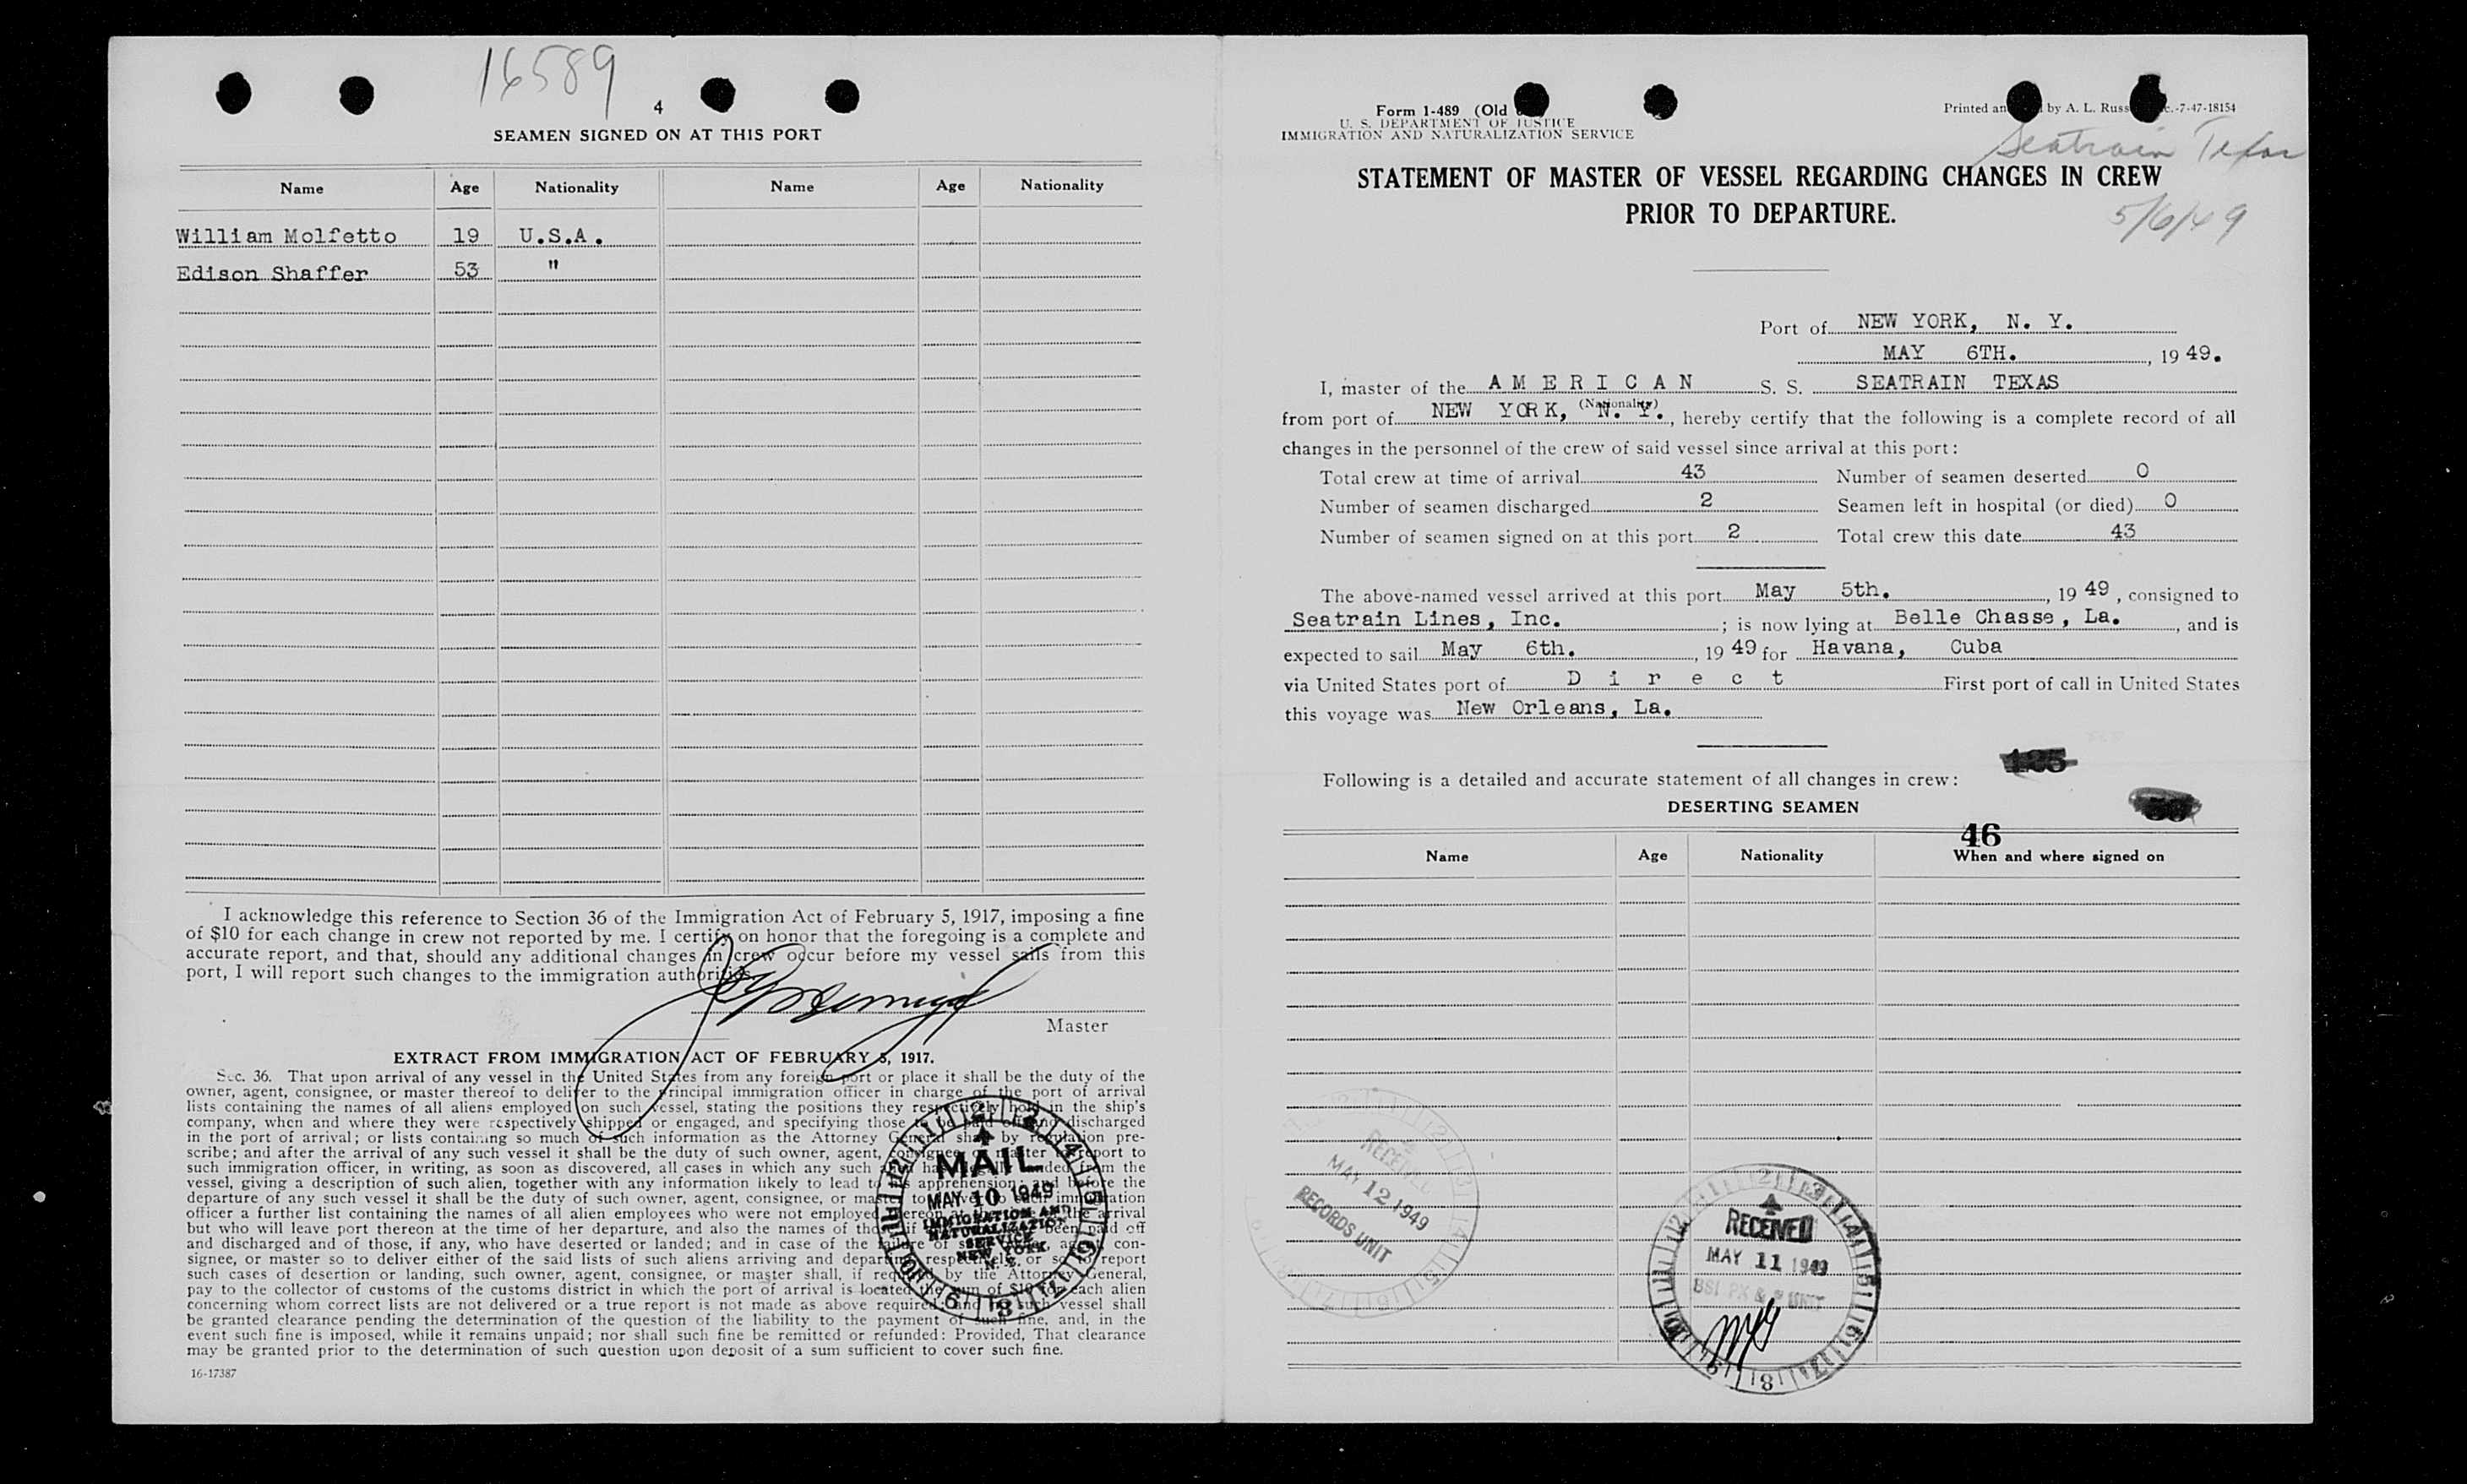 16589
4
SEAMEN SIGNED ON AT THIS PORT
Name Age Nationality Name Age Nationality
William Molfetto 19 U.S.A.
Edison Shaffer 53 "
I acknowledge this reference to Section 36 of the Immigration Act of February 5, 1917, imposing a fine
of $10 for each change in crew not reported by me. I certify on honor that the foregoing is a complete and
accurate report, and that, should any additional changes in crew occur before my vessel sails from this
port, I will report such changes to the immigration authorities.
Master
EXTRACT FROM IMMIGRATION ACT OF FEBRUARY 5, 1917.
Sec. 36. That upon arrival of any vessel in the United States from any foreign port or place it shall be the duty of the
owner, agent, consignee, or master thereof to deliver to the principal immigration officer in charge of the port of arrival
lists containing the names of all aliens employed on such vessel, stating the positions they respectively hold in the ship's
company, when and where they were respectively shipped or engaged, and specifying those to be paid off and discharged
in the port of arrival; or lists containing so much of such information as the Attorney General shall by regulation pre-
scribe; and after the arrival of any such vessel it shall be the duty of such owner, agent, consignee, or master to report to
such immigration officer, in writing, as soon as discovered, all cases in which any such alien has illegally landed from the
vessel, giving a description of such alien, together with any information likely to lead to his apprehension; and before the
departure of any such vessel it shall be the duty of such owner, agent, consignee, or master to deliver to such immigration
officer a further list containing the names of all alien employees who were not employed thereon at the time of the arrival
but who will leave port thereon at the time of her departure, and also the names of those, if any, who have been paid off
and discharged and of those, if any, who have deserted or landed; and in case of the failure of such owner, agent, con-
signee, or master so to deliver either of the said lists of such aliens arriving and departing, respectively, or so to report
such cases of desertion or landing, such owner, agent, consignee, or master shall, if required by the Attorney General,
pay to the collector of customs of the customs district in which the port of arrival is located the sum of $10 for each alien
concerning whom correct lists are not delivered or a true report is not made as above required; and no such vessel shall
be granted clearance pending the determination of the question of the liability to the payment of such fine, and, in the
event such fine is imposed, while it remains unpaid; nor shall such fine be remitted or refunded: Provided, That clearance
may be granted prior to the determination of such question upon deposit of a sum sufficient to cover such fine.
16-17387
MAIL
MAY 10 1949
IMMIGRATION AND
NATURALIZATION
SERVICE
NEW YORK,
N. Y.
Form 1-489 (Old
U. S. DEPARTMENT OF JUSTICE
IMMIGRATION AND NATURALIZATION SERVICE
Printed an by A. L. Russ c.-7-47-18154
Seatrain Texas
STATEMENT OF MASTER OF VESSEL REGARDING CHANGES IN CREW
PRIOR TO DEPARTURE.
5/6/49
Port of NEW YORK, N. Y.
MAY 6TH. , 19 49.
I, master of the A M E R I C A N S. S. SEATRAIN TEXAS
(Nationality)
from port of NEW YORK, N. Y. , hereby certify that the following is a complete record of all
changes in the personnel of the crew of said vessel since arrival at this port:
Total crew at time of arrival 43 Number of seamen deserted 0
Number of seamen discharged 2 Seamen left in hospital (or died) 0
Number of seamen signed on at this port 2 Total crew this date 43
The above-named vessel arrived at this port May 5th. , 19 49 , consigned to
Seatrain Lines, Inc. ; is now lying at Belle Chasse, La. , and is
expected to sail May 6th. , 19 49 for Havana, Cuba
via United States port of D i r e c t First port of call in United States
this voyage was New Orleans, La.
Following is a detailed and accurate statement of all changes in crew:
DESERTING SEAMEN
46
Name Age Nationality When and where signed on
RECEIVED
MAY 12 1949
RECORDS UNIT
RECEIVED
MAY 11 1949